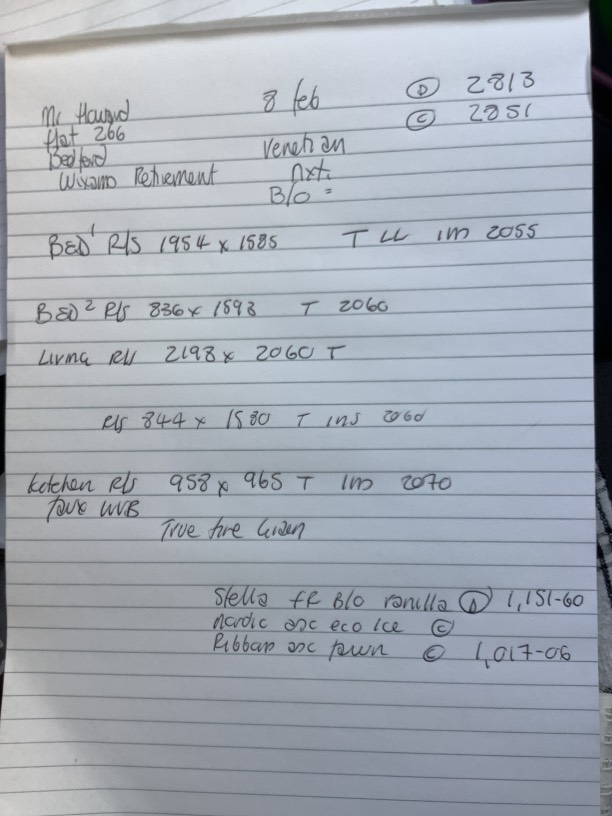 8 feb Ⓓ 2813
Mr Howard Ⓒ 2851
flat 266
Bedford Venetian
Wixams Retirement nxt
B/o =
BED 1 R/s 1954 x 1585 T LL 1m 2055
BED 2 R/s 836 x 1593 T 2060
Living R/s 2198 x 2060 T
R/s 844 x 1580 T ins 2060
kitchen R/s 958 x 965 T 1m 2070
faux WVB
True fire
Stella FR B/o vanilla Ⓓ 1,151-60
nordic asc eco Ice Ⓒ
Ribbons asc fawn Ⓒ 1,017-06